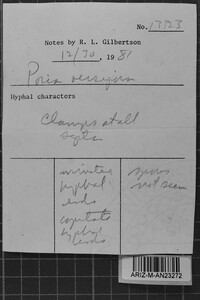 No. 13723
Notes by R. L. Gilbertson
12/30, 1981
Poria versipora
Hyphal characters
Clamps at all
septa
hyphal
ends
capitate
hyphal
ends
spores
not seen
ARIZ-M-AN23272